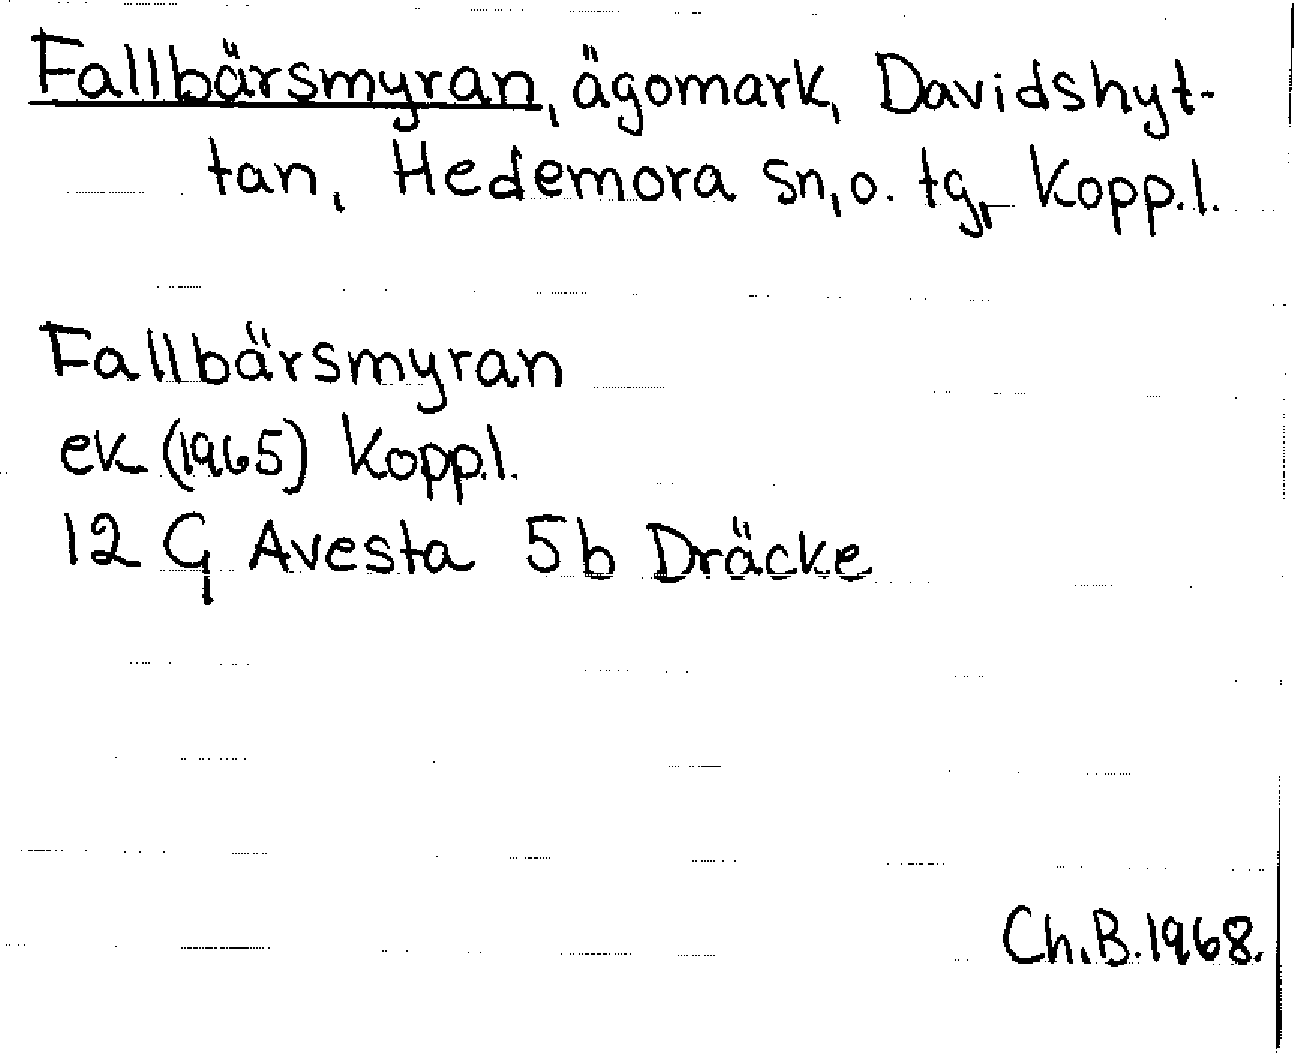 Fallbärsmyran, ägomark, Davidshyt-
tan, Hedemora sn, o. tg, Kopp.l.
Fallbärsmyran
ek (1965) Kopp.l.
12 G Avesta 5b Dräcke
Ch.B.1968.